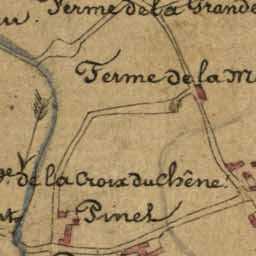 Ferme de la Grande
Ferme de la M
de la Croix du Chêne.
Pinel